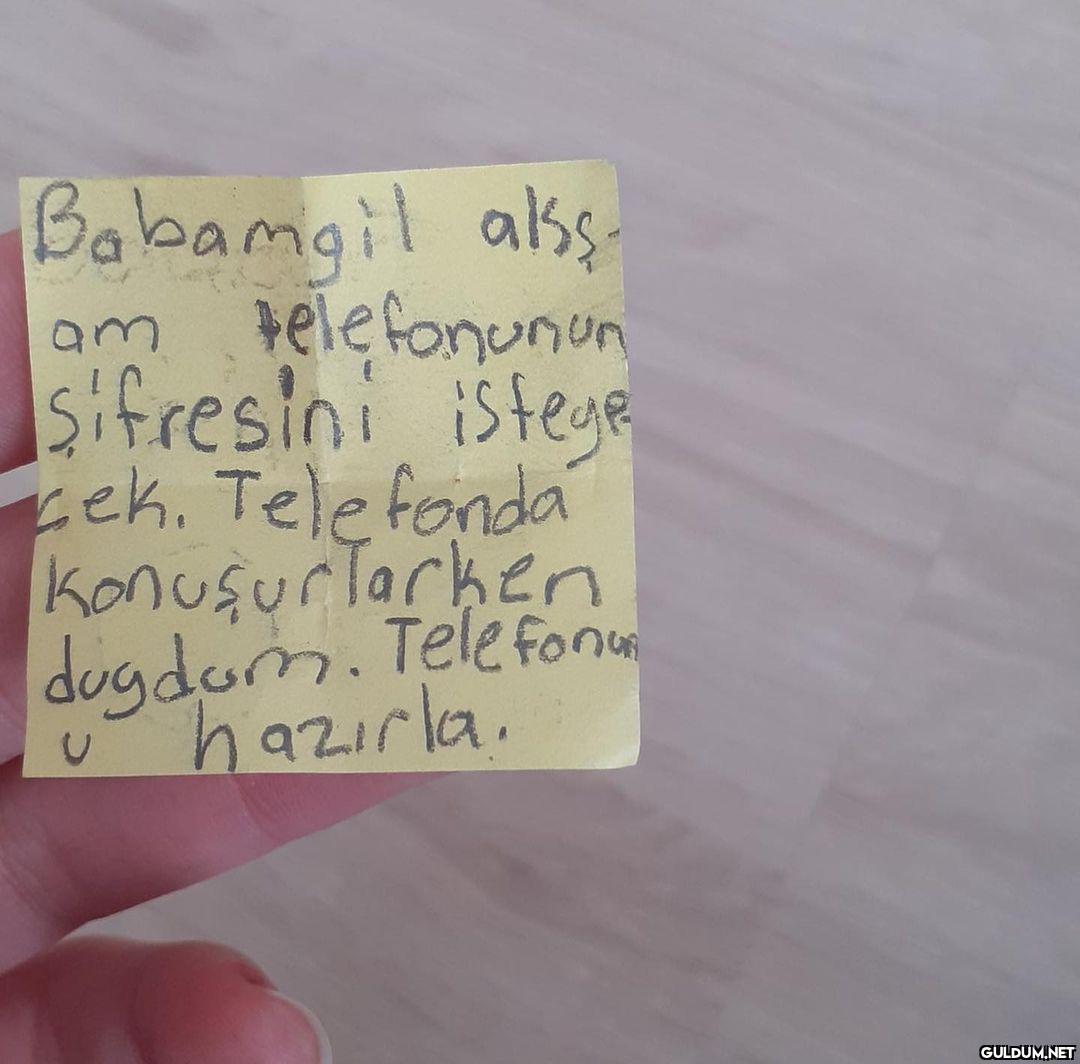 Babamgil akş-
am telefonunun
şifresini isteye
cek. Telefonda
konuşurlarken
dugdum. Telefonun
u hazırla.
GULDUM.NET